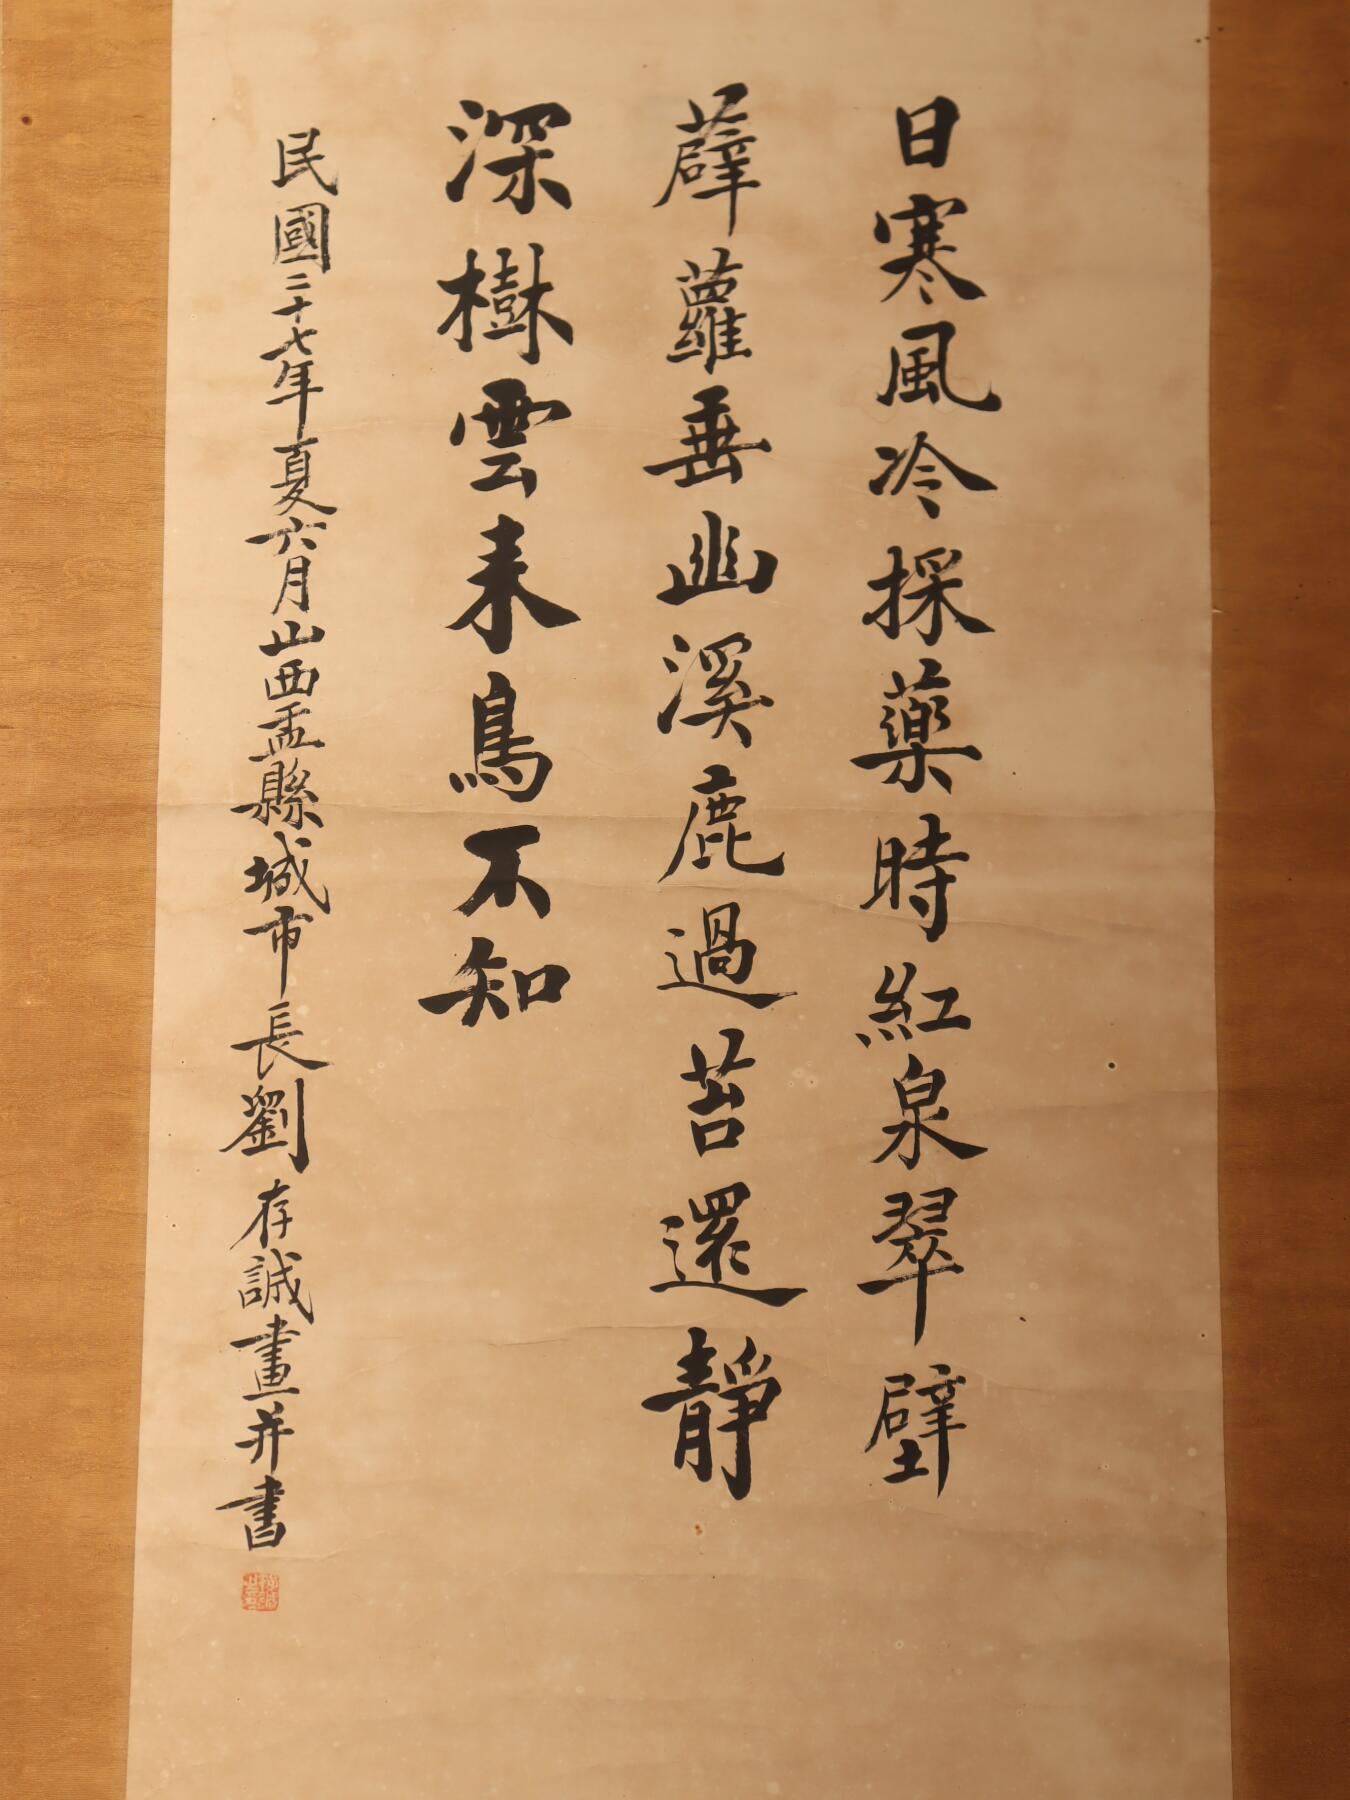 日寒風冷採藥時紅泉翠壁
薜蘿垂幽溪鹿過苔還靜
深樹雲来鳥不知
民國二十七年夏六月山西盂縣城市長劉存誠畫并書